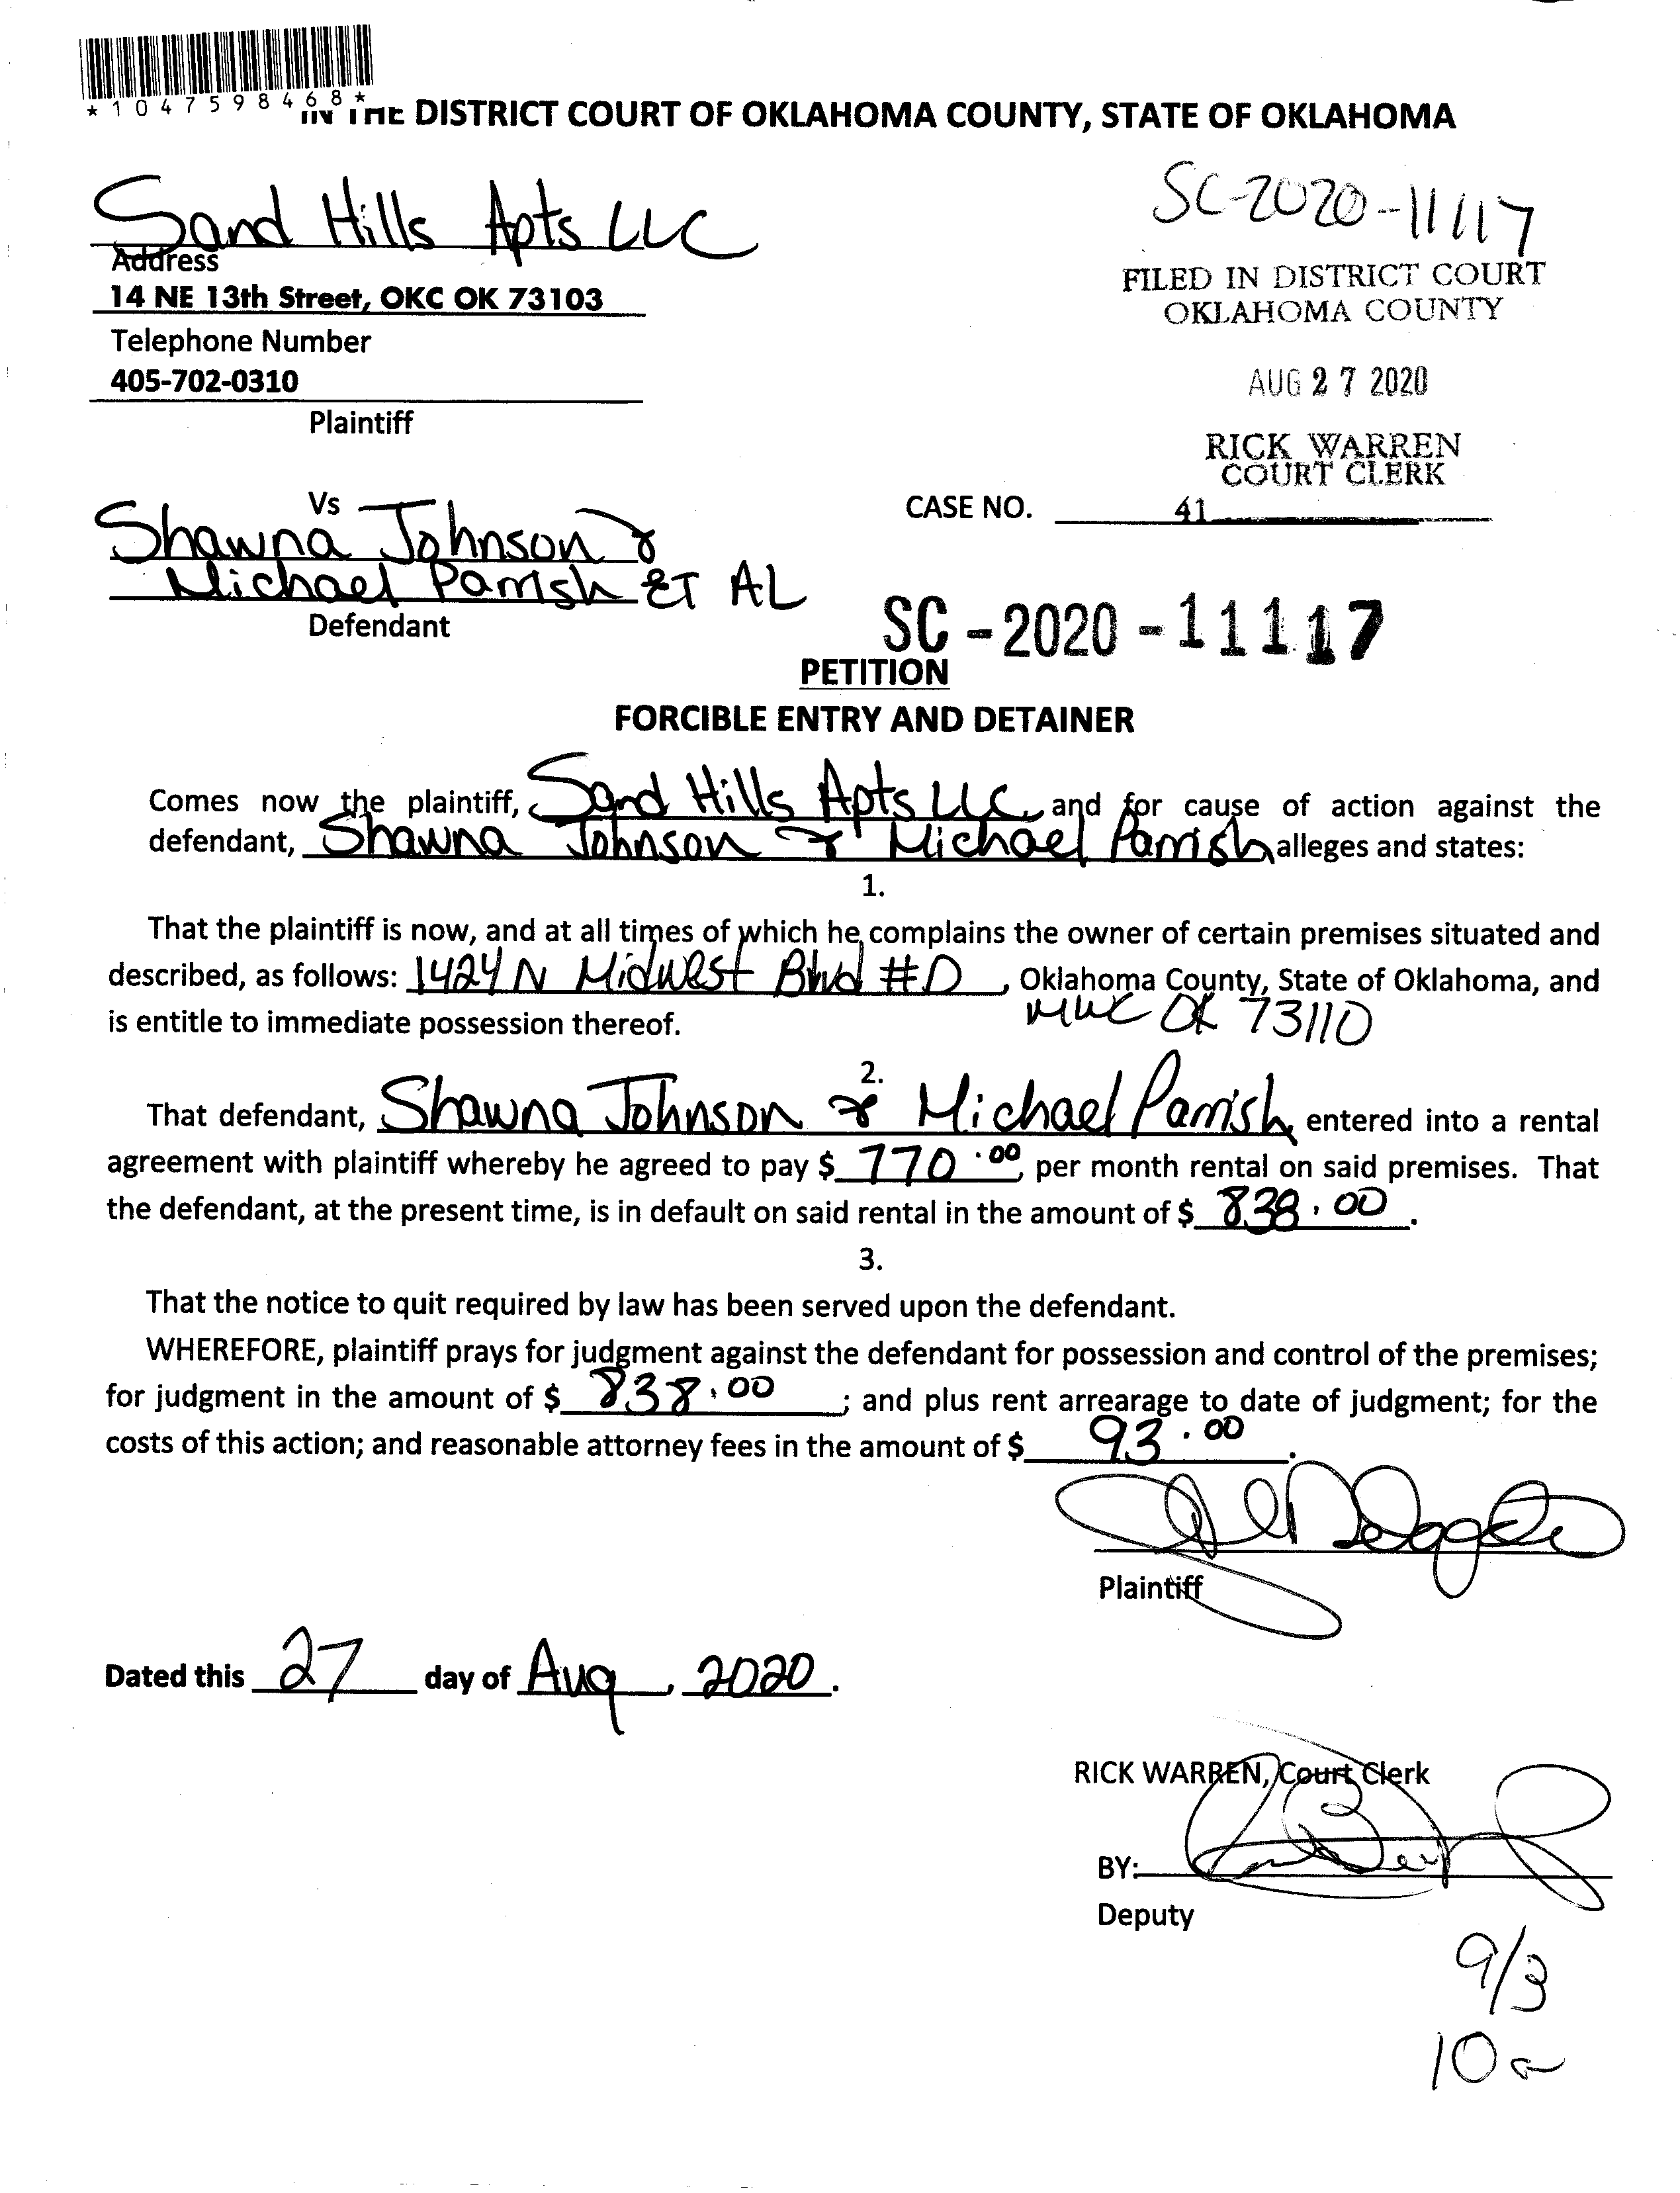 *1047598468*
IN THE DISTRICT COURT OF OKLAHOMA COUNTY, STATE OF OKLAHOMA
Sand Hills Apts LLC
Address
14 NE 13th Street, OKC OK 73103
Telephone Number
405-702-0310
Plaintiff
SC-2020-11117
FILED IN DISTRICT COURT
OKLAHOMA COUNTY
AUG 27 2020
RICK WARREN
COURT CLERK
CASE NO. 41
Vs
Shawna Johnson &
Michael Parrish ET AL
Defendant
SC-2020-11117
PETITION
FORCIBLE ENTRY AND DETAINER
Comes now the plaintiff, Sand Hills Apts LLC, and for cause of action against the
defendant, Shawna Johnson & Michael Parrish alleges and states:
1.
That the plaintiff is now, and at all times of which he complains the owner of certain premises situated and
described, as follows: 1424 N Midwest Blvd #D, Oklahoma County, State of Oklahoma, and
is entitle to immediate possession thereof. MWC OK 73110
2.
That defendant, Shawna Johnson & Michael Parrish entered into a rental
agreement with plaintiff whereby he agreed to pay $ 770.00, per month rental on said premises. That
the defendant, at the present time, is in default on said rental in the amount of $ 838.00.
3.
That the notice to quit required by law has been served upon the defendant.
WHEREFORE, plaintiff prays for judgment against the defendant for possession and control of the premises;
for judgment in the amount of $ 838.00; and plus rent arrearage to date of judgment; for the
costs of this action; and reasonable attorney fees in the amount of $ 93.00.
Plaintiff
Dated this 27 day of Aug, 2020.
RICK WARREN, Court Clerk
BY:
Deputy
9/3
10a